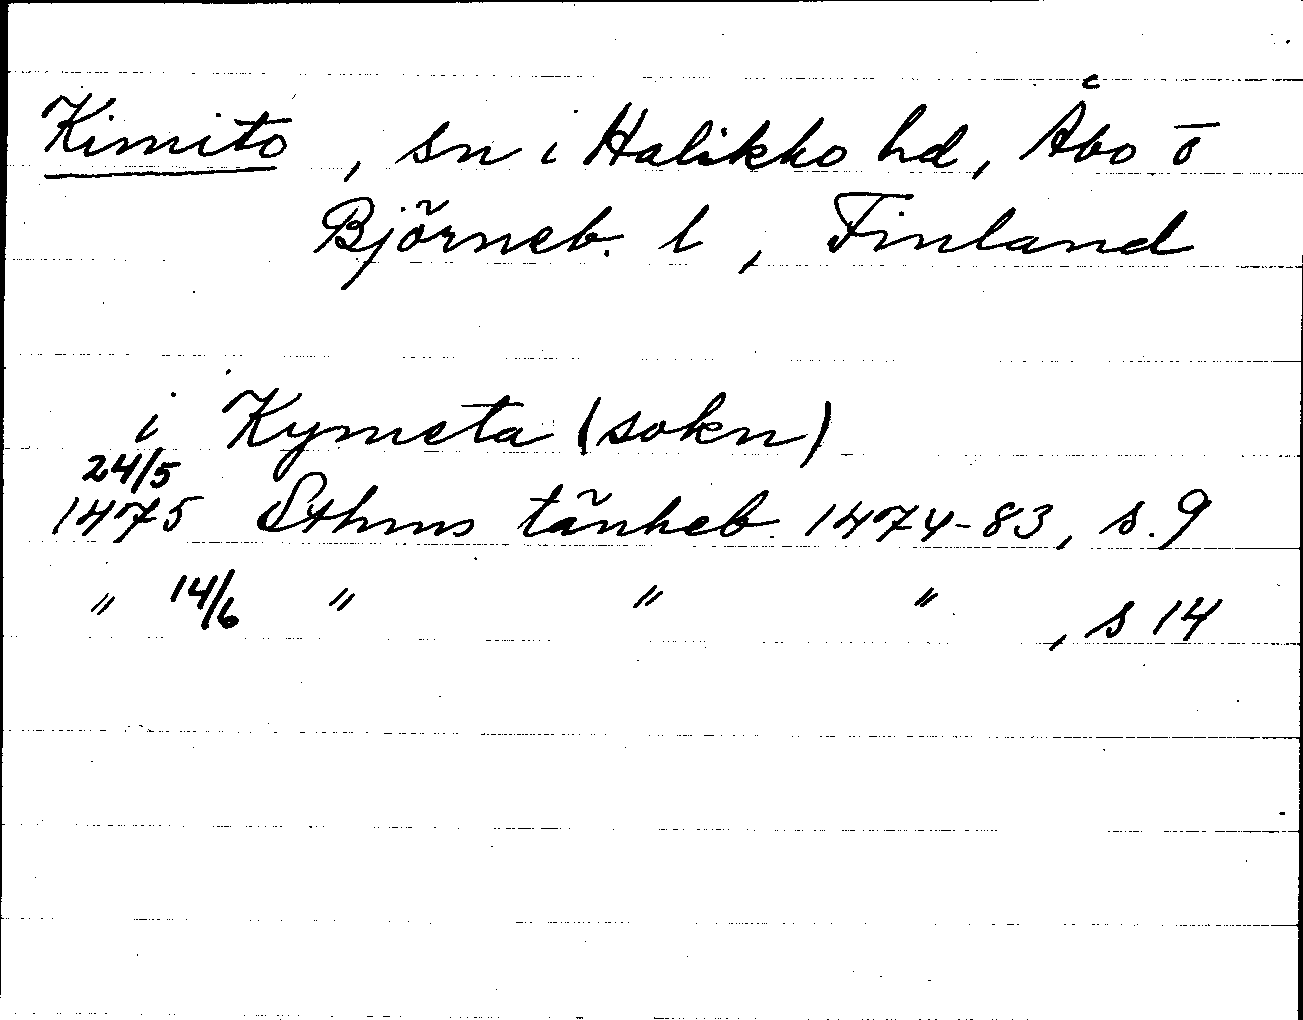 Kimito, sn i Halikko hd, Åbo o
Björneb. l, Finland
i Kymeta (sokn)
24/5
1475 Sthms tänkeb. 1474-83, s. 9
" 14/6 " " " , s 14